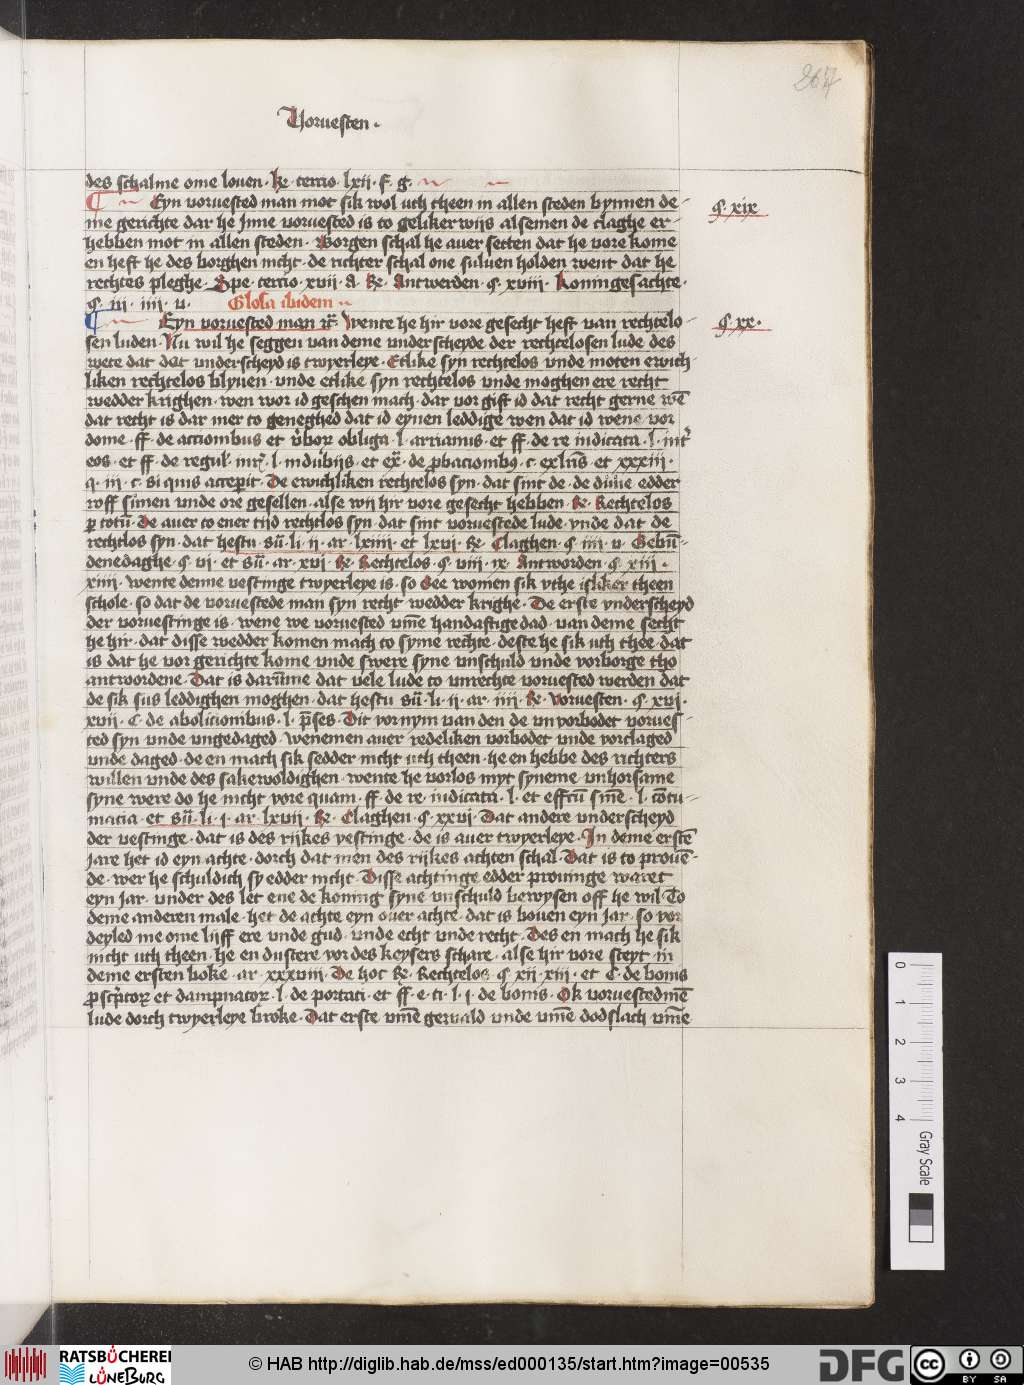 267
Voruesten.
des schal me ome louen. Re. tercio. lxii. f. g.
Eyn vorvested man mot sik wol uth theen in allen steden bynnen de-
me gerichte dar he jnne vorvested is to geliker wijs alse men de claghe er-
hebben mot in allen steden. Borgen schal he auer setten dat he vore kome
en heft he des borghen nicht. de richter schal one suluen holden went dat he
rechtes pleghe. Spe. tercio. xvii. a. Re. Antwerden. ꝗ. xviii. Koninges achte.
ꝗ. iii. iiii. v. Glosa ibidem
ꝗ. xix
Eyn vorvested man rc̄. Wente he hir vore gesecht heft van rechtelo-
ꝗ. xx.
sen luden. Nu wil he seggen van deme underscheyde der rechtelosen lude des
wete dat dat underscheyd is twyerleye. Etlike syn rechtelos unde moten ewich-
liken rechtelos blyuen. unde etlike syn rechtelos unde moghen ere recht
wedder krighen. wen wor id geschen mach. dar vor gift id dat recht gerne wē
dat recht is dar mer to geneghed dat id eynen leddige wen dat id wene vor
dome. ff. de accionibus et v̄bor obliga. l. arrianus. et ff. de re iudicata. l. int̄
eos. et ff. de regul. iur̄. l. in dubijs. et ex̄. de p̄bacionibus. c. ex lr̄is. et xxxiii.
q. iii. c. si quis acceperit. De ewichliken rechtelos syn. dat sint de. de diuie edder
roff sunnen unde ore gesellen. alse wij hir vore gesecht hebben. Re. Rechtelos
p totū. De auer to ener tijd rechtlos syn. dat sint vorvestede lude. vnde dat de
rechtlos syn. dat hestu. sū. li. ii. ar. lxiiii. et lxvi. Re. Claghen. ꝗ. iiii. v. Gebū-
denedaghe. ꝗ. vi. et sū. ar. xvi. Re. Rechtelos. ꝗ. viii. ix. Antworden. ꝗ. xiii.
xiiii. Wente denne vestinge twyerleye is. so See women sik vthe isliker theen
schole. so dat de vorvestede man syn recht wedder krighe. De erste vnderscheyd
der vorvestinge is. wene we vorvested um̄e handaftige dad. van deme secht
he hir. dat disse wedder komen mach to syme rechte. deste he sik uth thee. dat
is dat he vor gerichte kome unde swere syne unschuld unde vorborge tho
antwordene. Dat is darūme dat vele lude to unrechte vorvested werden dat
de sik sus leddighen moghen. dat hestu sū. li. ii. ar. iiii. Re. Voruesten. ꝗ. xvi.
xvii. C. de abolicionibus. l. p̄ses. Dit vornym van den de unvorbodet vorves-
ted syn unde ungedaged. wenemen auer redeliken vorbodet unde vorclaged
unde daged. de en mach sik sedder nicht uth theen. he en hebbe des richters
willen unde des sakewoldighen. wente he vorlos myt syneme unhorsame
syne were do he nicht vore quam. ff. de re iudicata. l. et effctū sm̄e. l. cōtu-
macia. et sū. li. i. ar. lxvii. Re. Claghen. ꝗ. xxvi. Dat andere underscheyd
der vestinge. dat is des rijkes vestinge. de is auer twyerleye. In deme erstē
jare het id eyn achte. dorch dat men des rijkes achten schal. Dat is to prouē-
de. wer he schuldich sy edder nicht. Disse achtinge edder prouinge waret
eyn jar. under des let ene de koning syne unschuld bewysen off he wil. To
deme anderen male. het de achte eyn ouer achte. dat is bouen eyn jar. so vor
deyled me ome lijff ere unde gud. unde echt unde recht. Des en mach he sik
nicht uth theen. he en dustere vor des keysers schare. alse hir vore steyt in
deme ersten boke. ar. xxxviii. De hoc Re. Rechtelos. ꝗ. xii. xiii. et C. de bonis
p̄scptor et dampnator. l. de portati. et ff. e. ti. l. i. de bonis. Ok vorvestedmē
lude dorch twyerleye broke. Dat erste um̄e gewald unde um̄e dodslach um̄e
0 1 2 3 4
Gray Scale
RATSBÜCHEREI
LÜNEBURG
© HAB http://diglib.hab.de/mss/ed000135/start.htm?image=00535
DFG
cc
BY SA